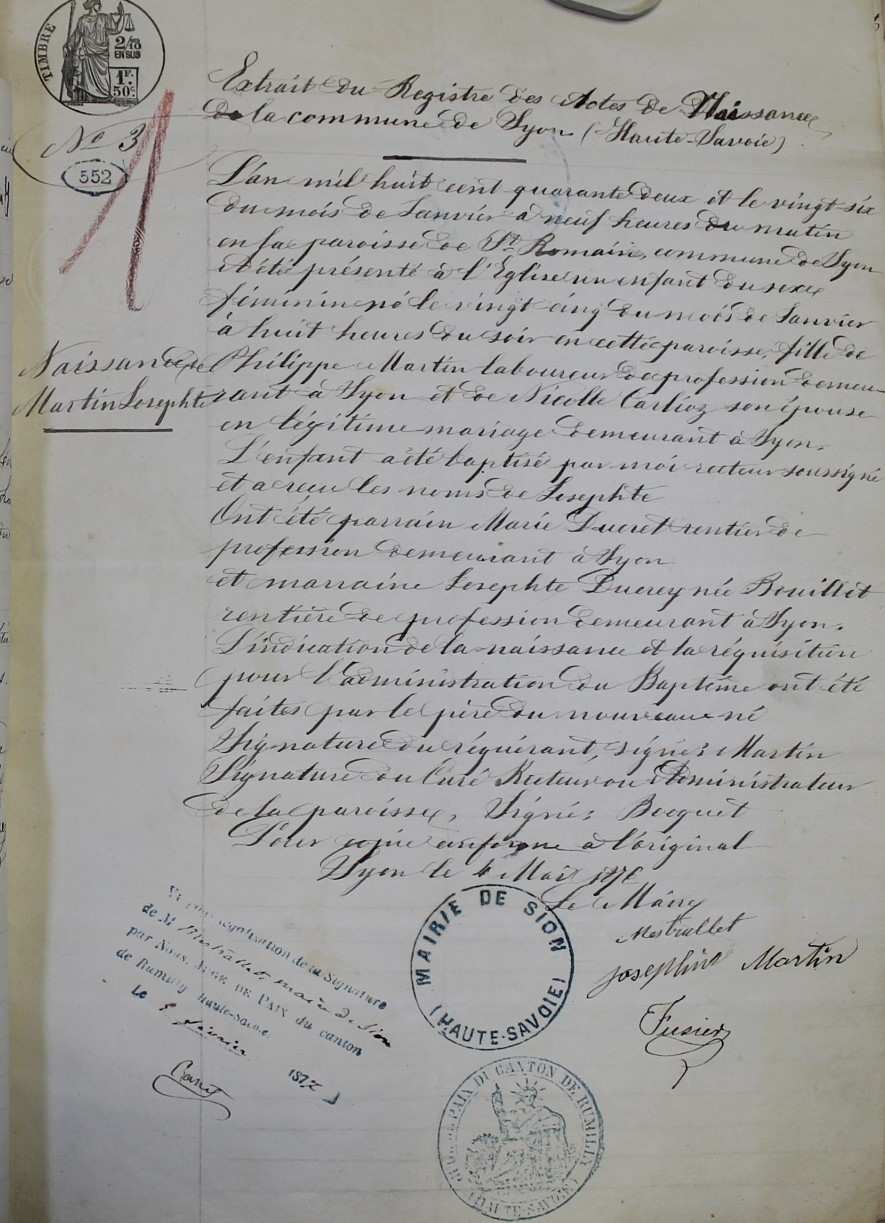 TIMBRE
2/10
EN SUS
1F.
50c.
No 3
552
Extrait du Registre des Actes de Naissance
de la commune de Syon (Haute-Savoie)
L'an mil huit cent quarante deux et le vingt-six
du mois de Janvier à neuf heures du matin
en la paroisse de St. Romain, commune de Syon
a été présenté à l'Eglise un enfant du sexe
féminin né le vingt cinq du mois de Janvier
à huit heures du soir en cette paroisse, fille de
Naissance de
Martin Josephte
Philippe Martin laboureur de profession demeu-
rant à Syon et de Nicolle Carlioz son épouse
en légitime mariage demeurant à Syon.
L'enfant a été baptisé par moi recteur soussigné
et a reçu les noms de Josephte
Ont été parrain Marie Ducret rentier de
profession demeurant à Syon
et marraine Josephte Ducrey née Bouillet
rentière de profession demeurant à Syon.
L'indication de la naissance et la réquisition
pour l'administration du Baptême ont été
faites par le père du nouveau né
Signature du réquérant, signé: Martin
Signature du Curé Recteur ou Administrateur
de la paroisse, Signé: Bocquet
Pour copie conforme à l'original
Syon le 4
Le Maire
Mestrallet
Josephine Martin
Fusier
MAIRIE DE SION
(HAUTE-SAVOIE)
légalisation de la Signature
de M Mestrallet, maire de Sion
par Nous, JUGE DE PAIX du canton
de Rumilly haute-Savoie.
Le 5
187
PAIX DU CANTON DE RUMILLY
(HAUTE-SAVOIE)